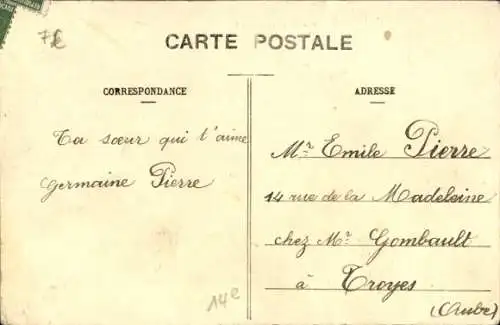 7€
CARTE POSTALE
CORRESPONDANCE
Ta sœur qui t'aime
Germaine Pierre
14e
ADRESSE
Mr Emile Pierre
14 rue de la Madeleine
chez Mr Gombault
à Troyes
(Aube)